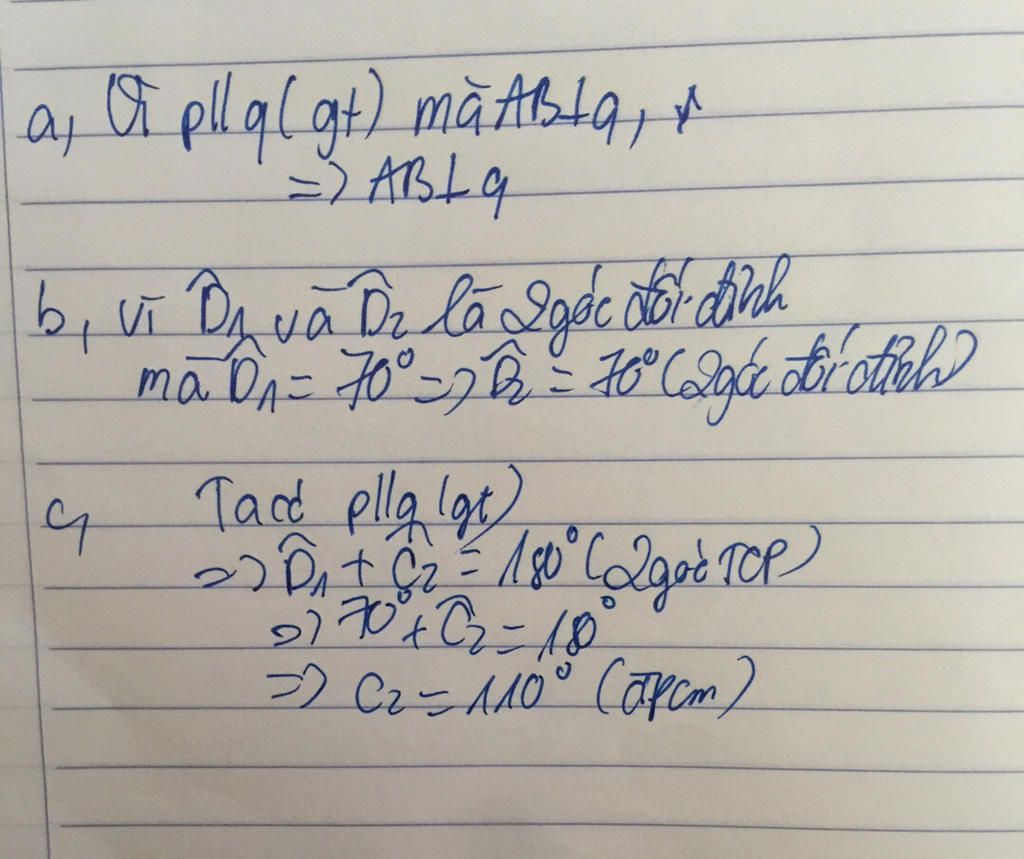 a, Vì p//q (gt) mà AB⊥q,
=> AB⊥q
b, vì D̂₁ và D̂₂ là 2 góc đối đỉnh
mà D̂₁ = 70° => D̂₂ = 70° (2 góc đối đỉnh)
c, Ta có p//q (gt)
=> D̂₁ + Ĉ₂ = 180° (2 góc TCP)
=> 70° + Ĉ₂ = 180°
=> C₂ = 110° (đpcm)